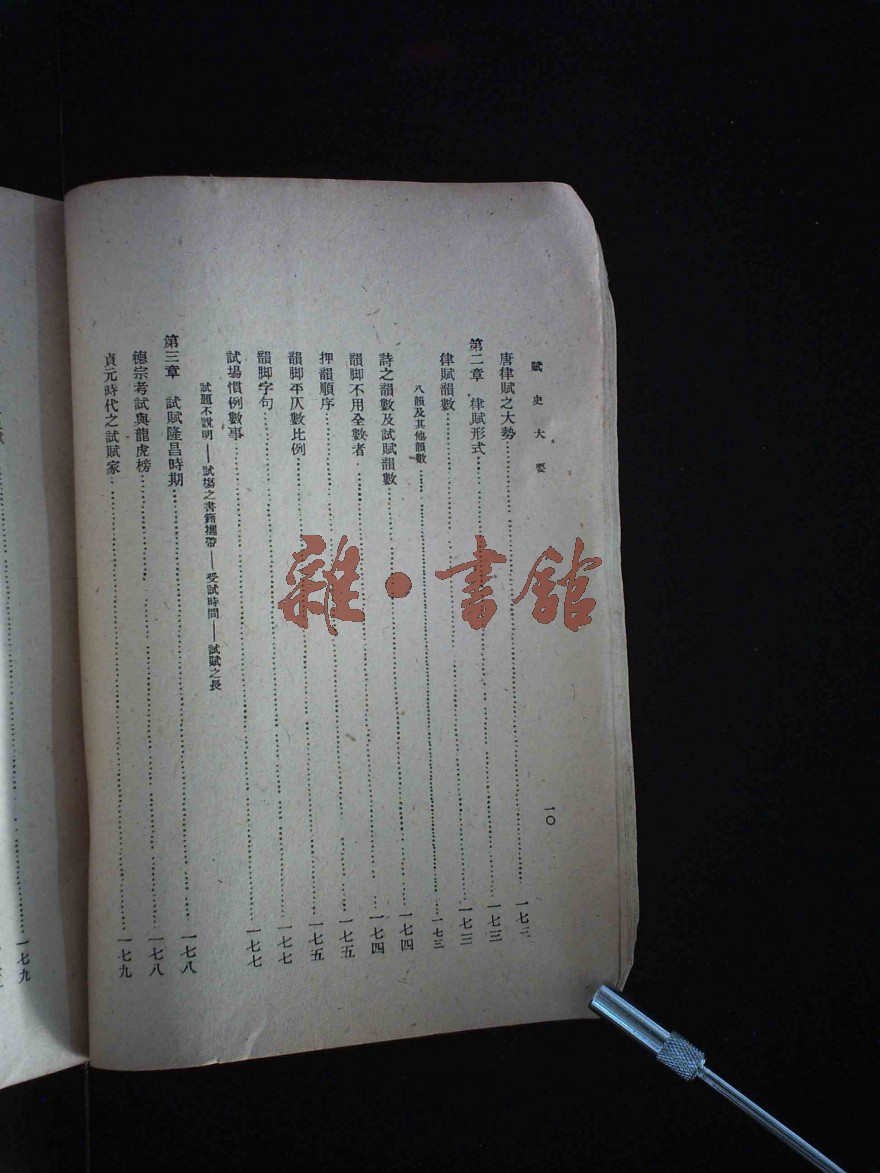 賦史大要
一〇
唐律賦之大勢……一七二
第二章　律賦形式……一七三
律賦韻數……一七三
八韻及其他韻數……一七三
詩之韻數及試賦韻數……一七四
韻脚不用全數者……一七四
押韻順序……一七五
韻脚平仄數比例……一七五
韻脚字句……一七七
試場慣例數事……一七七
試題不說明——試塲之書籍攜帶——受試時間——試賦之長
第三章　試賦隆昌時期……一七八
德宗考試與龍虎榜……一七八
貞元時代之試賦家……一七九
一七九
雜·書館